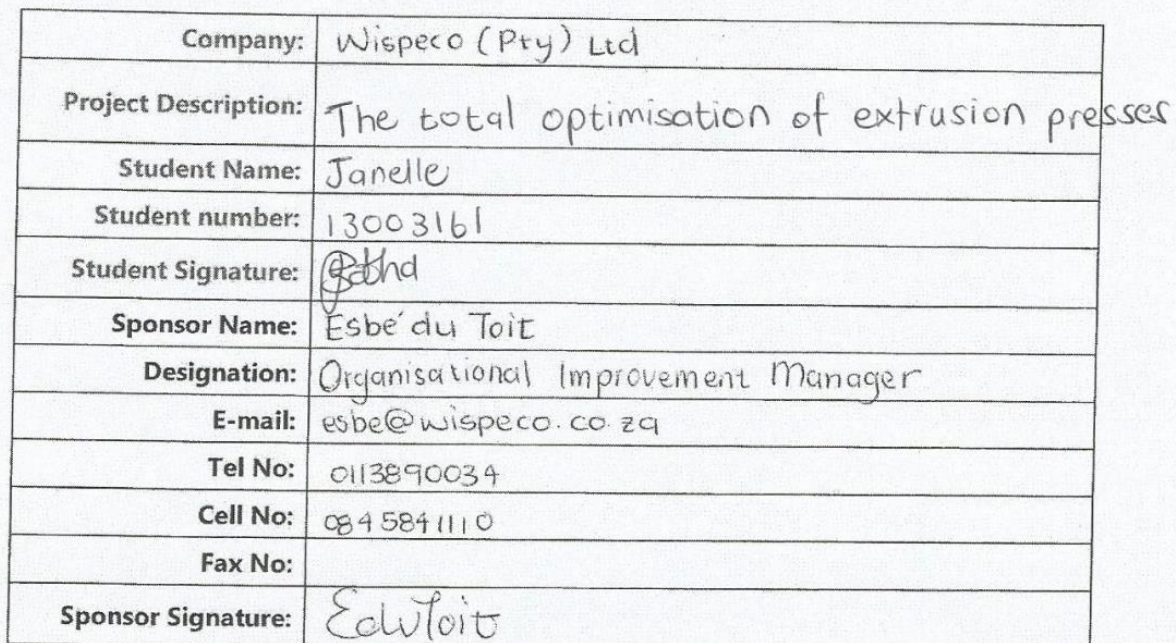 Company: Wispeco (Pty) Ltd
Project Description: The total optimisation of extrusion presses
Student Name: Janelle
Student number: 13003161
Student Signature:
Sponsor Name: Esbé du Toit
Designation: Organisational Improvement Manager
E-mail: esbe@wispeco.co.za
Tel No: 0113890034
Cell No: 0845841110
Fax No:
Sponsor Signature: EduToit